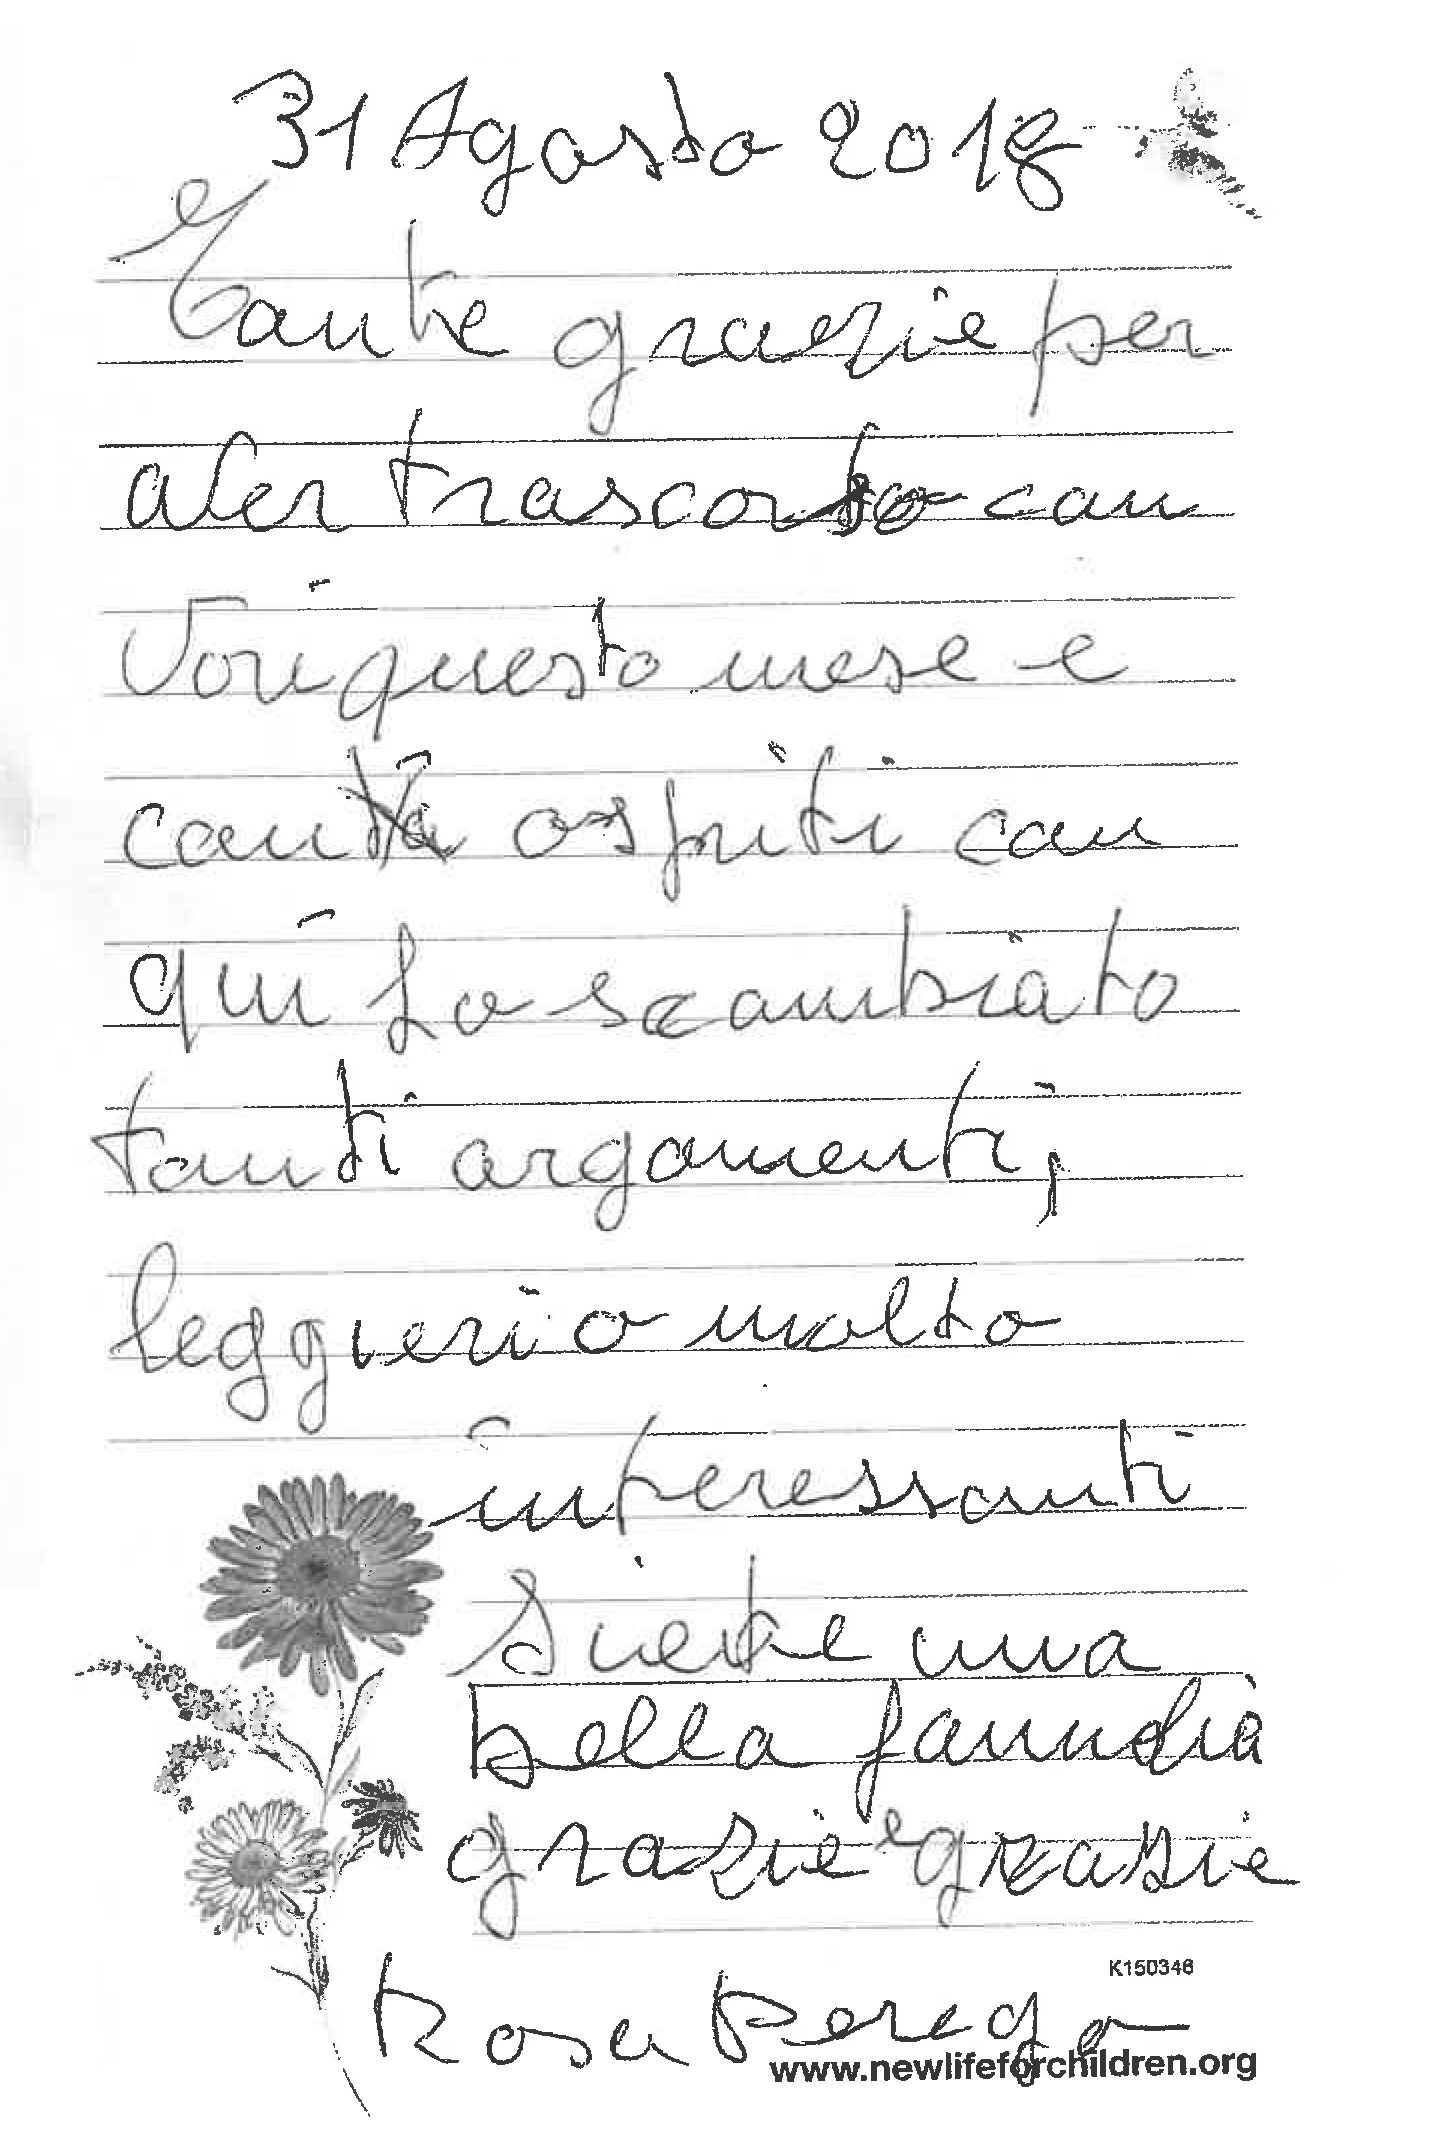 31 Agosto 2018
Tante grazie per
aver trascorso con
Voi questo mese e
tanti ospiti con
qui ho scambiato
tanti argomenti,
leggieri o molto
interessanti
Siete una
bella famiglia
grazie e grazie
K150346
Rosa Perego
www.newlifeforchildren.org